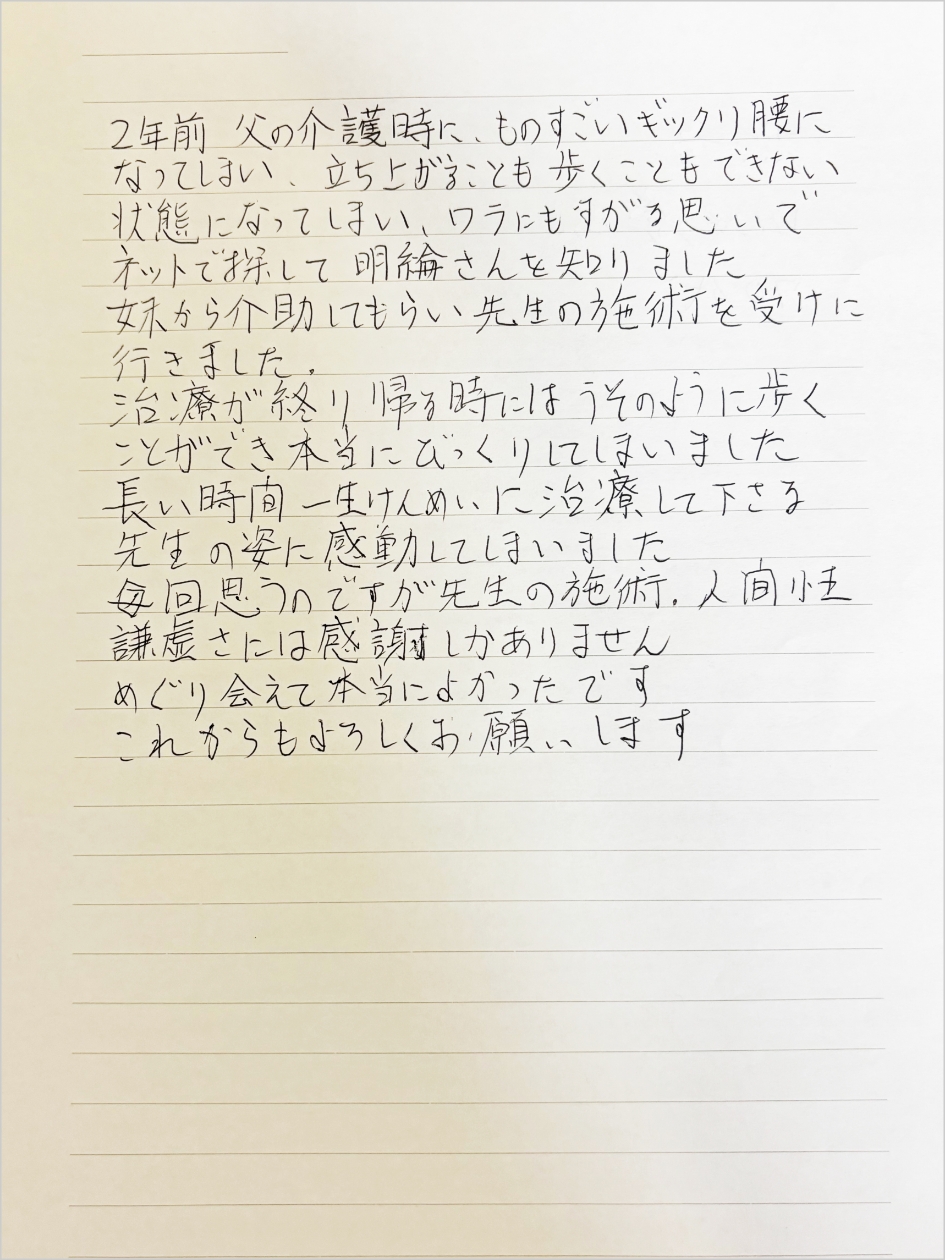 2年前 父の介護時に、ものすごいギックリ腰に
なってしまい、立ち上がることも歩くこともできない
状態になってしまい、ワラにもすがる思いで
ネットで探して 明綸さんを知りました
妹から介助してもらい先生の施術を受けに
行きました.
治療が終り帰る時にはうそのように歩く
ことができ本当にびっくりしてしまいました
長い時間一生けんめいに治療して下さる
先生の姿に感動してしまいました
毎回思うのですが先生の施術.人間性
謙虚さには感謝しかありません
めぐり会えて本当によかったです
これからもよろしくお願いします